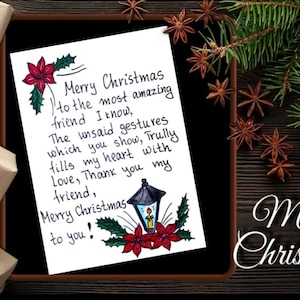 Merry Christmas
to the most amazing
friend I know,
The unsaid gestures
which you show, Trully
fills my heart with
Love, Thank you my
friend,
Merry Christmas
to you!
M
Chris